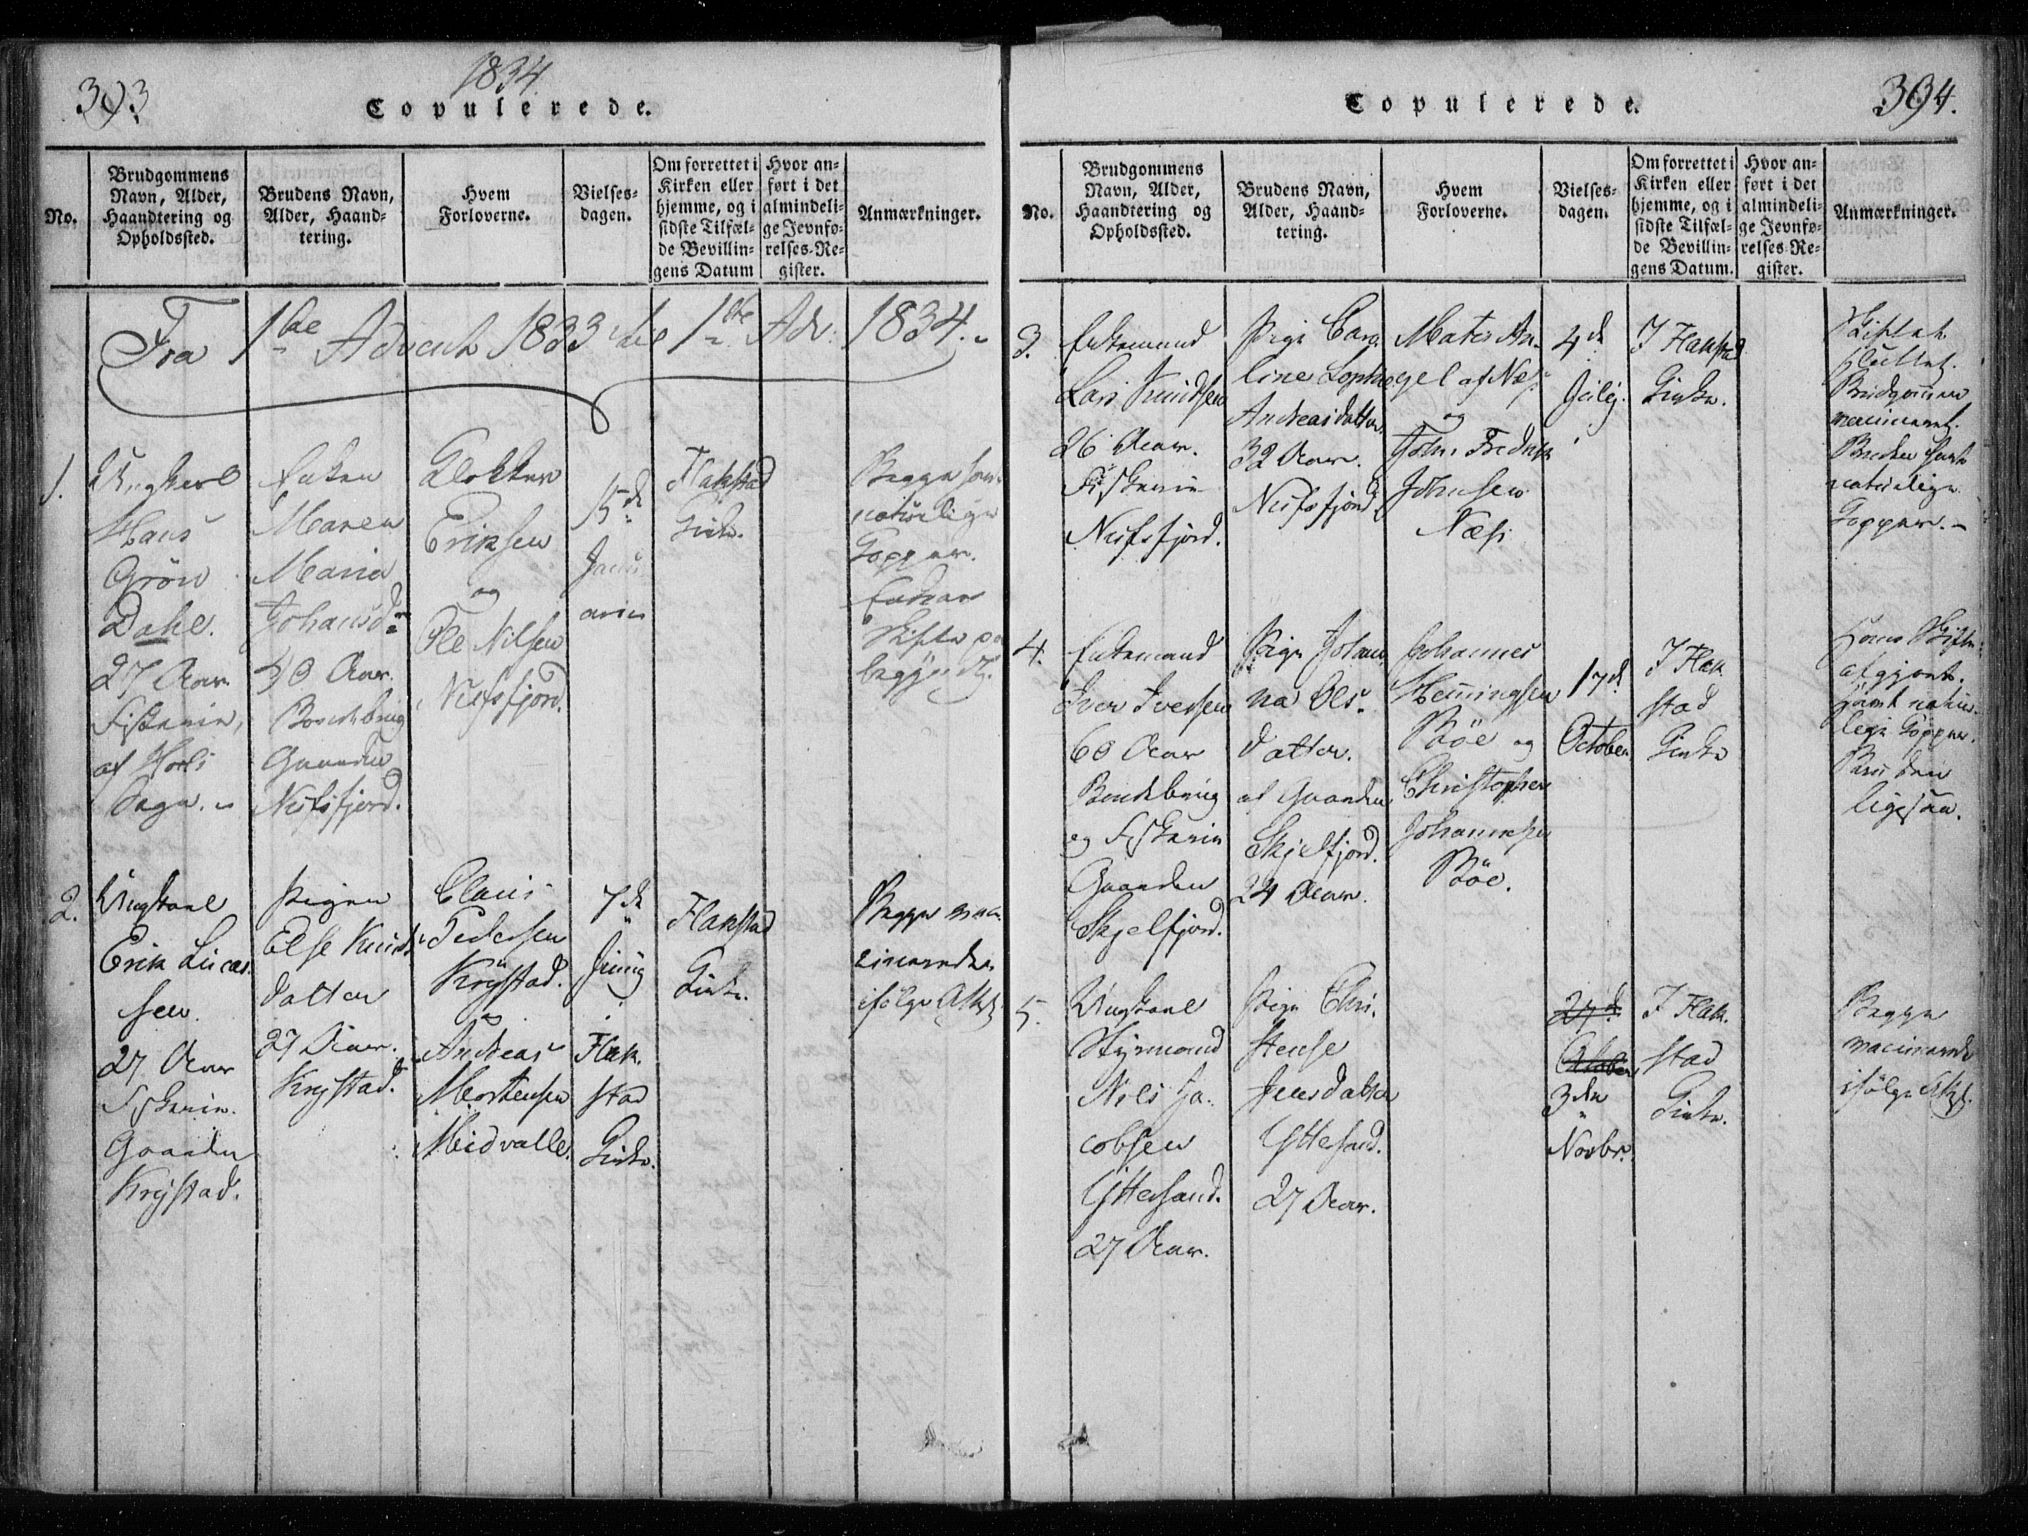 393
1834.
Copulerede.
No.
Brudgommens
Navn, Alder,
Haandtering og
Opholdssted.
Brudens Navn,
Alder, Haand-
tering.
Hvem
Forloverne.
Vielses-
dagen.
Om forrettet i
Kirken eller
hjemme, og i
sidste Tilfæl-
de Bevillin-
gens Datum
Hvor an-
ført i det
almindeli-
ge Jevnfø-
relses-Re-
gister.
Anmærkninger.
Fra 1ste Advent 1833 til 1ste Adv. 1834.
1.
Ungkarl
Hans
Grön
Dahl.
27 Aar
Fiskerie,
af Hols
Sogn.
Enken
Maren
Maria
Johansdr
40 Aar.
Bondebrug
Gaarden
Nufsfjord.
Klokker
Eriksen
og
Ole Nilsen
Nufsfjord.
15de
Janu
arii
Flakstad
Kirke.
Begge have
naturlige
Kopper.
Enken
Skifte
2.
Ungkarl
Erik Lucas
sen
27 Aar
Fiskerie.
Gaarden
Krystad.
Pigen
Else Knuds
datter
27 Aar.
Krystad.
Claus
Pedersen
Krystad.
og
Andreas
Mortensen
Midvalle.
7de
Junij
Flak
stad
Kirke.
Flakstad
Kirke.
Begge vac
cinerede
ifølge Attest
394.
Copulerede.
No.
Brudgommens
Navn, Alder,
Haandtering og
Opholdssted.
Brudens Navn,
Alder, Haand-
tering.
Hvem
Forloverne.
Vielses-
dagen.
Om forrettet i
Kirken eller
hjemme, og i
sidste Tilfæl-
de Bevillin-
gens Datum.
Hvor an-
ført i det
almindeli-
ge Jevnfø-
relses-Re-
gister.
Anmærkninger.
3.
Enkemand
Lars Knudsen
26 Aar.
Fiskerie
Nufsfjord.
Pige Caro
line Sophie
Andreasdatter
32 Aar.
Nufsfjord
Mates An
gel af Næs
og
John Fredrik
Johnsen
Næss
4de
Julij.
I Flakstad
Kirke.
Skiftet
sluttet.
Brudgommen
vaccineret.
Bruden havt
naturlige
Kopper.
4.
Enkemand
Iver Iversen
60 Aar
Bondebrug
og Fiskerie
Gaarden
Skjelfjord.
Pige Johan
na Ols
datter.
af Gaarden
Skjelfjord.
24 Aar.
Johannes
Henningsen
Böe og
Christopher
Johannesen
Böe.
17de
October
I Flak
stad
Kirke
Skifte
afgjort.
havt natur
lige Kopper.
Bruden
ligesaa.
5.
Ungkarl
Styrmand
Nils Ja
cobsen
Yttersand.
27 Aar.
Pige Chri
stense
Jensdatter
Yttersand.
27 Aar.
27de
October
3die
Novbr.
I Flak
stad
Kirke.
Begge
vaccinerede
ifølge Attest.